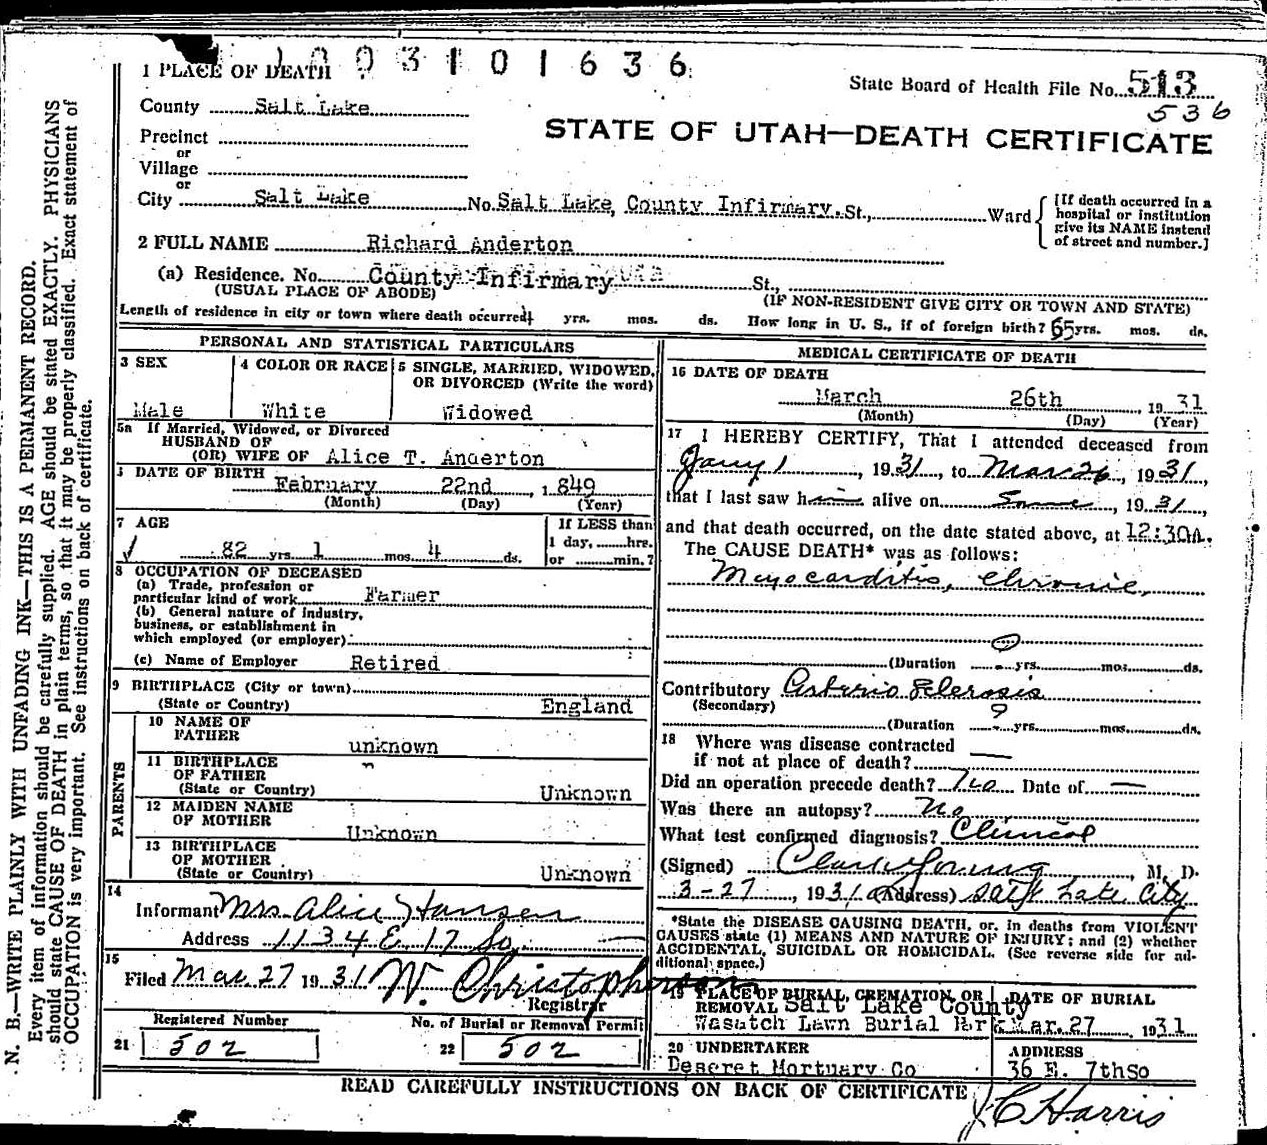 1003101636
1 PLACE OF DEATH
State Board of Health File No. 513
536
County Salt Lake
STATE OF UTAH—DEATH CERTIFICATE
Precinct
or
Village
or
City Salt Lake No. Salt Lake, County Infirmary. St., Ward
[If death occurred in a
hospital or institution
give its NAME instead
of street and number.]
2 FULL NAME Richard Anderton
(a) Residence. No. County Infirmary St.,
(USUAL PLACE OF ABODE) (IF NON-RESIDENT GIVE CITY OR TOWN AND STATE)
Length of residence in city or town where death occurred yrs. mos. ds. How long in U. S., if of foreign birth? 65 yrs. mos. ds.
PERSONAL AND STATISTICAL PARTICULARS
3 SEX
Male
4 COLOR OR RACE
White
5 SINGLE, MARRIED, WIDOWED,
OR DIVORCED (Write the word)
Widowed
5a If Married, Widowed, or Divorced
HUSBAND OF
(OR) WIFE OF Alice T. Anderton
DATE OF BIRTH
February 22nd, 1849
(Month) (Day) (Year)
7 AGE
82 yrs. 1 mos. 4 ds.
If LESS than
1 day, hrs.
or min.?
8 OCCUPATION OF DECEASED
(a) Trade, profession or
particular kind of work Farmer
(b) General nature of industry,
business, or establishment in
which employed (or employer)
(c) Name of Employer Retired
9 BIRTHPLACE (City or town)
(State or Country) England
PARENTS
10 NAME OF
FATHER unknown
11 BIRTHPLACE
OF FATHER
(State or Country) Unknown
12 MAIDEN NAME
OF MOTHER
Unknown
13 BIRTHPLACE
OF MOTHER
(State or Country) Unknown
14
Informant Mrs. Alice Hansen
Address 1134 E 17 So.
15
Filed Mar. 27 1931 W. Christopherson
Registrar
Registered Number
21 502
No. of Burial or Removal Permit
22 502
MEDICAL CERTIFICATE OF DEATH
16 DATE OF DEATH
March 26th, 1931
(Month) (Day) (Year)
17 I HEREBY CERTIFY, That I attended deceased from
Jany 1, 1931, to Mar 26, 1931,
that I last saw him alive on Same, 1931,
and that death occurred, on the date stated above, at 12:30A.
The CAUSE DEATH* was as follows:
Myocarditis, Chronic,
(Duration ? yrs. mos. ds.
Contributory Arterio Sclerosis
(Secondary)
?
(Duration yrs. mos. ds.
18 Where was disease contracted
if not at place of death? —
Did an operation precede death? No Date of —
Was there an autopsy? No
What test confirmed diagnosis? Clinical
(Signed) Young, M. D.
3-27, 1931 (Address) Salt Lake City
*State the DISEASE CAUSING DEATH, or, in deaths from VIOLENT
CAUSES state (1) MEANS AND NATURE OF INJURY; and (2) whether
ACCIDENTAL, SUICIDAL OR HOMICIDAL. (See reverse side for ad-
ditional space.)
19 PLACE OF BURIAL, CREMATION, OR
REMOVAL Salt Lake County
Wasatch Lawn Burial Park
DATE OF BURIAL
Mar. 27 1931
20 UNDERTAKER
Deseret Mortuary Co
ADDRESS
36 E. 7thSo
READ CAREFULLY INSTRUCTIONS ON BACK OF CERTIFICATE
J C Harris
N. B.—WRITE PLAINLY WITH UNFADING INK—THIS IS A PERMANENT RECORD.
Every item of information should be carefully supplied. AGE should be stated EXACTLY. PHYSICIANS
should state CAUSE OF DEATH in plain terms, so that it may be properly classified. Exact statement of
OCCUPATION is very important. See instructions on back of certificate.